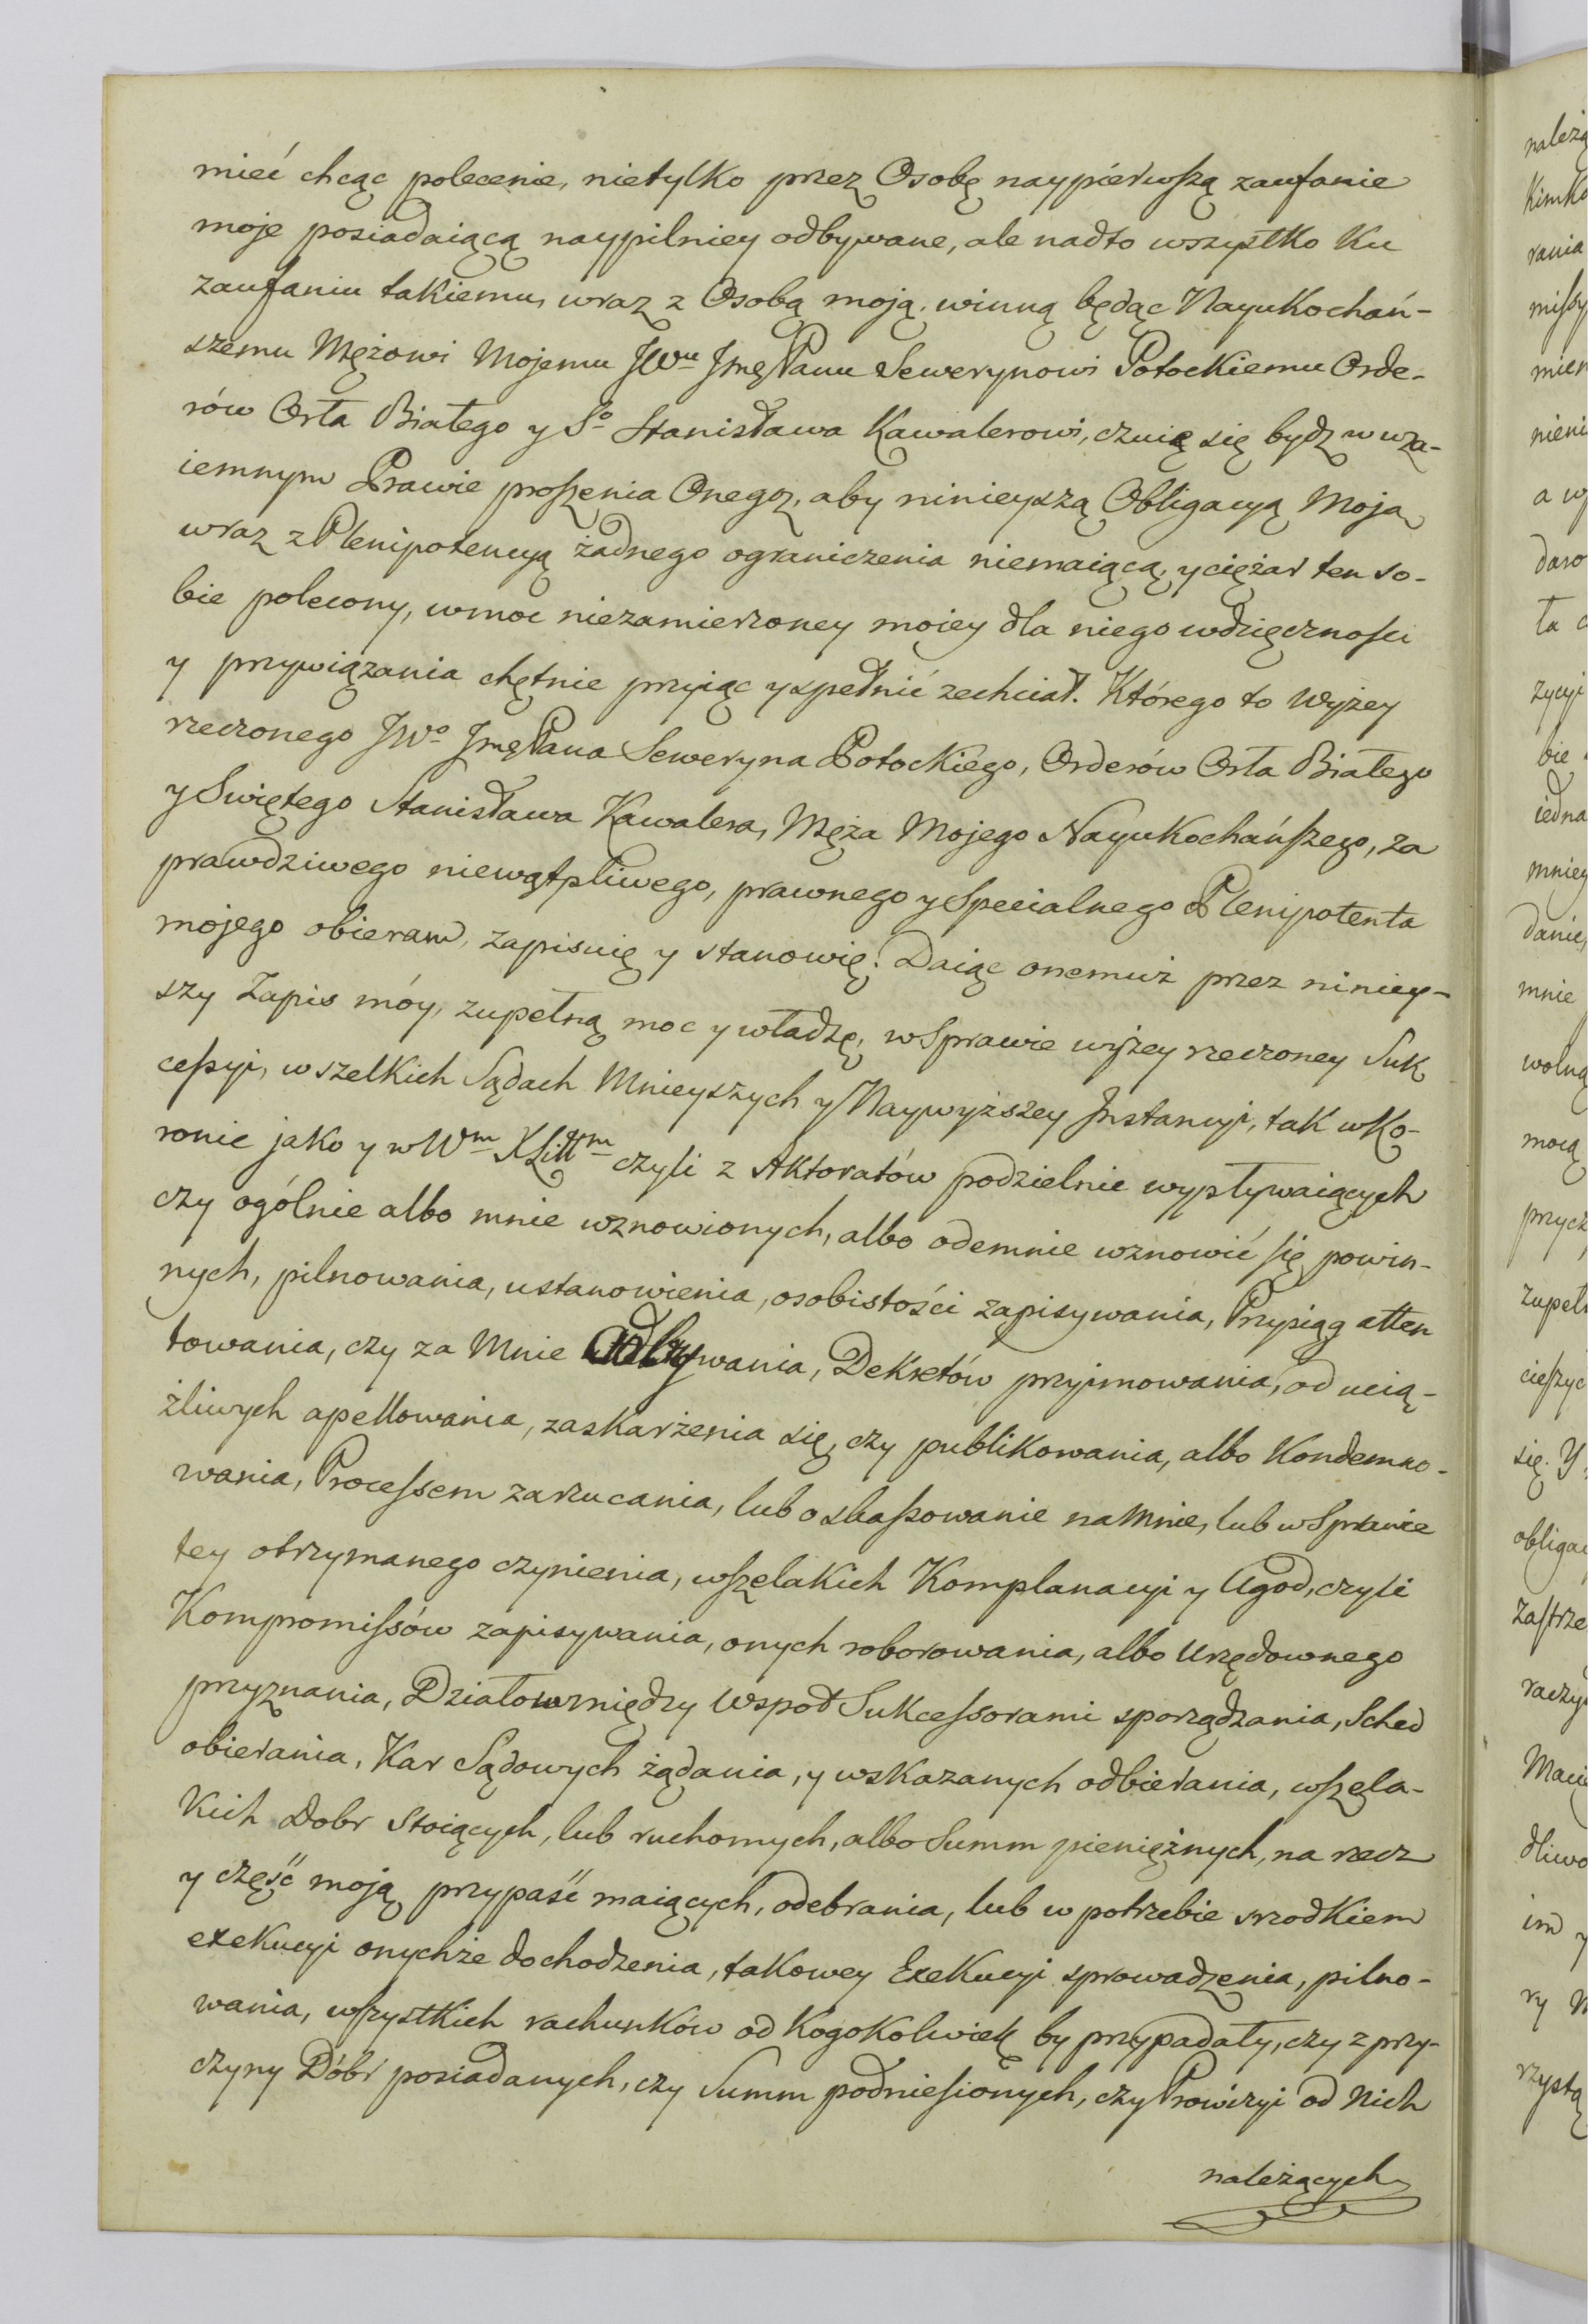 mieć chcąc polecenie, nietylko przez Osobę naypierwszą zaufanie
moje posiadaiącą naypilniey odbywane, ale nadto wszystko Ku
zaufaniu takiemu, wraz z Osobą moją, winną będąc NayuKochań-
szemu Mężowi Mojemu JWu JmęPanu Sewerynowi PotocKiemu Orde-
rów Orła Białego y So Stanisława Kawalerowi, czuię się bydz w wza-
iemnym Prawie proszenia Onegoz, aby ninieyszą Obligacyą Moją
wraz z Plenipotencyą żadnego ograniczenia niemaiącą, y ciężar ten so-
bie polecony, w moc niezamierzoney moiey dla niego wdzięczności
y przywiązania chętnie przyiąc y spełnić zechciał. Którego to Wyżey
rzeczonego JWo JmęPana Seweryna PotocKiégo, Orderów Orła Białego
y Swiętego Stanisława Kawalera, Męża Mojego NayuKochańszego, za
prawdziwego niewątpliwego, prawnego y Specialnego Plenipotenta
mojego obieram, zapisuię y stanowię: Daiąc onemuż przez niniey-
szy Zapis móy, zupełną moc y władzę, w Sprawie wyżey rzeczoney Suk
cessyi, w szelkich Sądach Mnieyszych y Naywyższey Jnstancyi, tak w Ko-
ronie jako y w Wm XLittm czyli z Aktoratów podzielnie wypływaiących
czy ogólnie albo mnie wznowionych, albo odemnie wznowić się powin-
nych, pilnowania, ustanowienia, osobistości zapisywania, Przysiąg atten
towania, czy za Mnie Odbywania, Dekretów przyimowania, od ucią-
żliwych apellowania, zaskarżenia się, czy publiKowania, albo Kondemno-
wania, Processem zarzucania, lub o skassowanie na Mnie, lub w Sprawie
tey otrzymanego czynienia, wszelakich Komplanacyi y Ugod, czyli
Kompromissów zapisywania, onych roborowania, albo Urzędownego
przyznania, Działow między Wspoł Sukcessorami sporządzania, Sched
obierania, Kar Sądowych żądania, y wskazanych odbierania, wszela-
Kich Dobr Stoiących, lub ruchomych, albo Summ pieniężnych, na rzecz
y część moją przypaść maiących, odebrania, lub w potrzebie srzodKiem
exekucyi onychże dochodzenia, taKowey Exekucyi sprowadzenia, pilno-
wania, wszystkich rachunków od KogoKolwiek by przypadały, czy z przy-
czyny Dóbr posiadanych, czy Summ podniesionych, czy Prowizyi od Nich
należących
należą
KimKo
rania
missy
mien
nieni
a w
daro
ła
zycyi
bie
iedna
mniey
danie,
mnie
wolną
mocą
przycz
zupeł
cieszyc
się. Y
obliga
zastrze
raczy
Macie
dliwo
im y
ry
rzystą